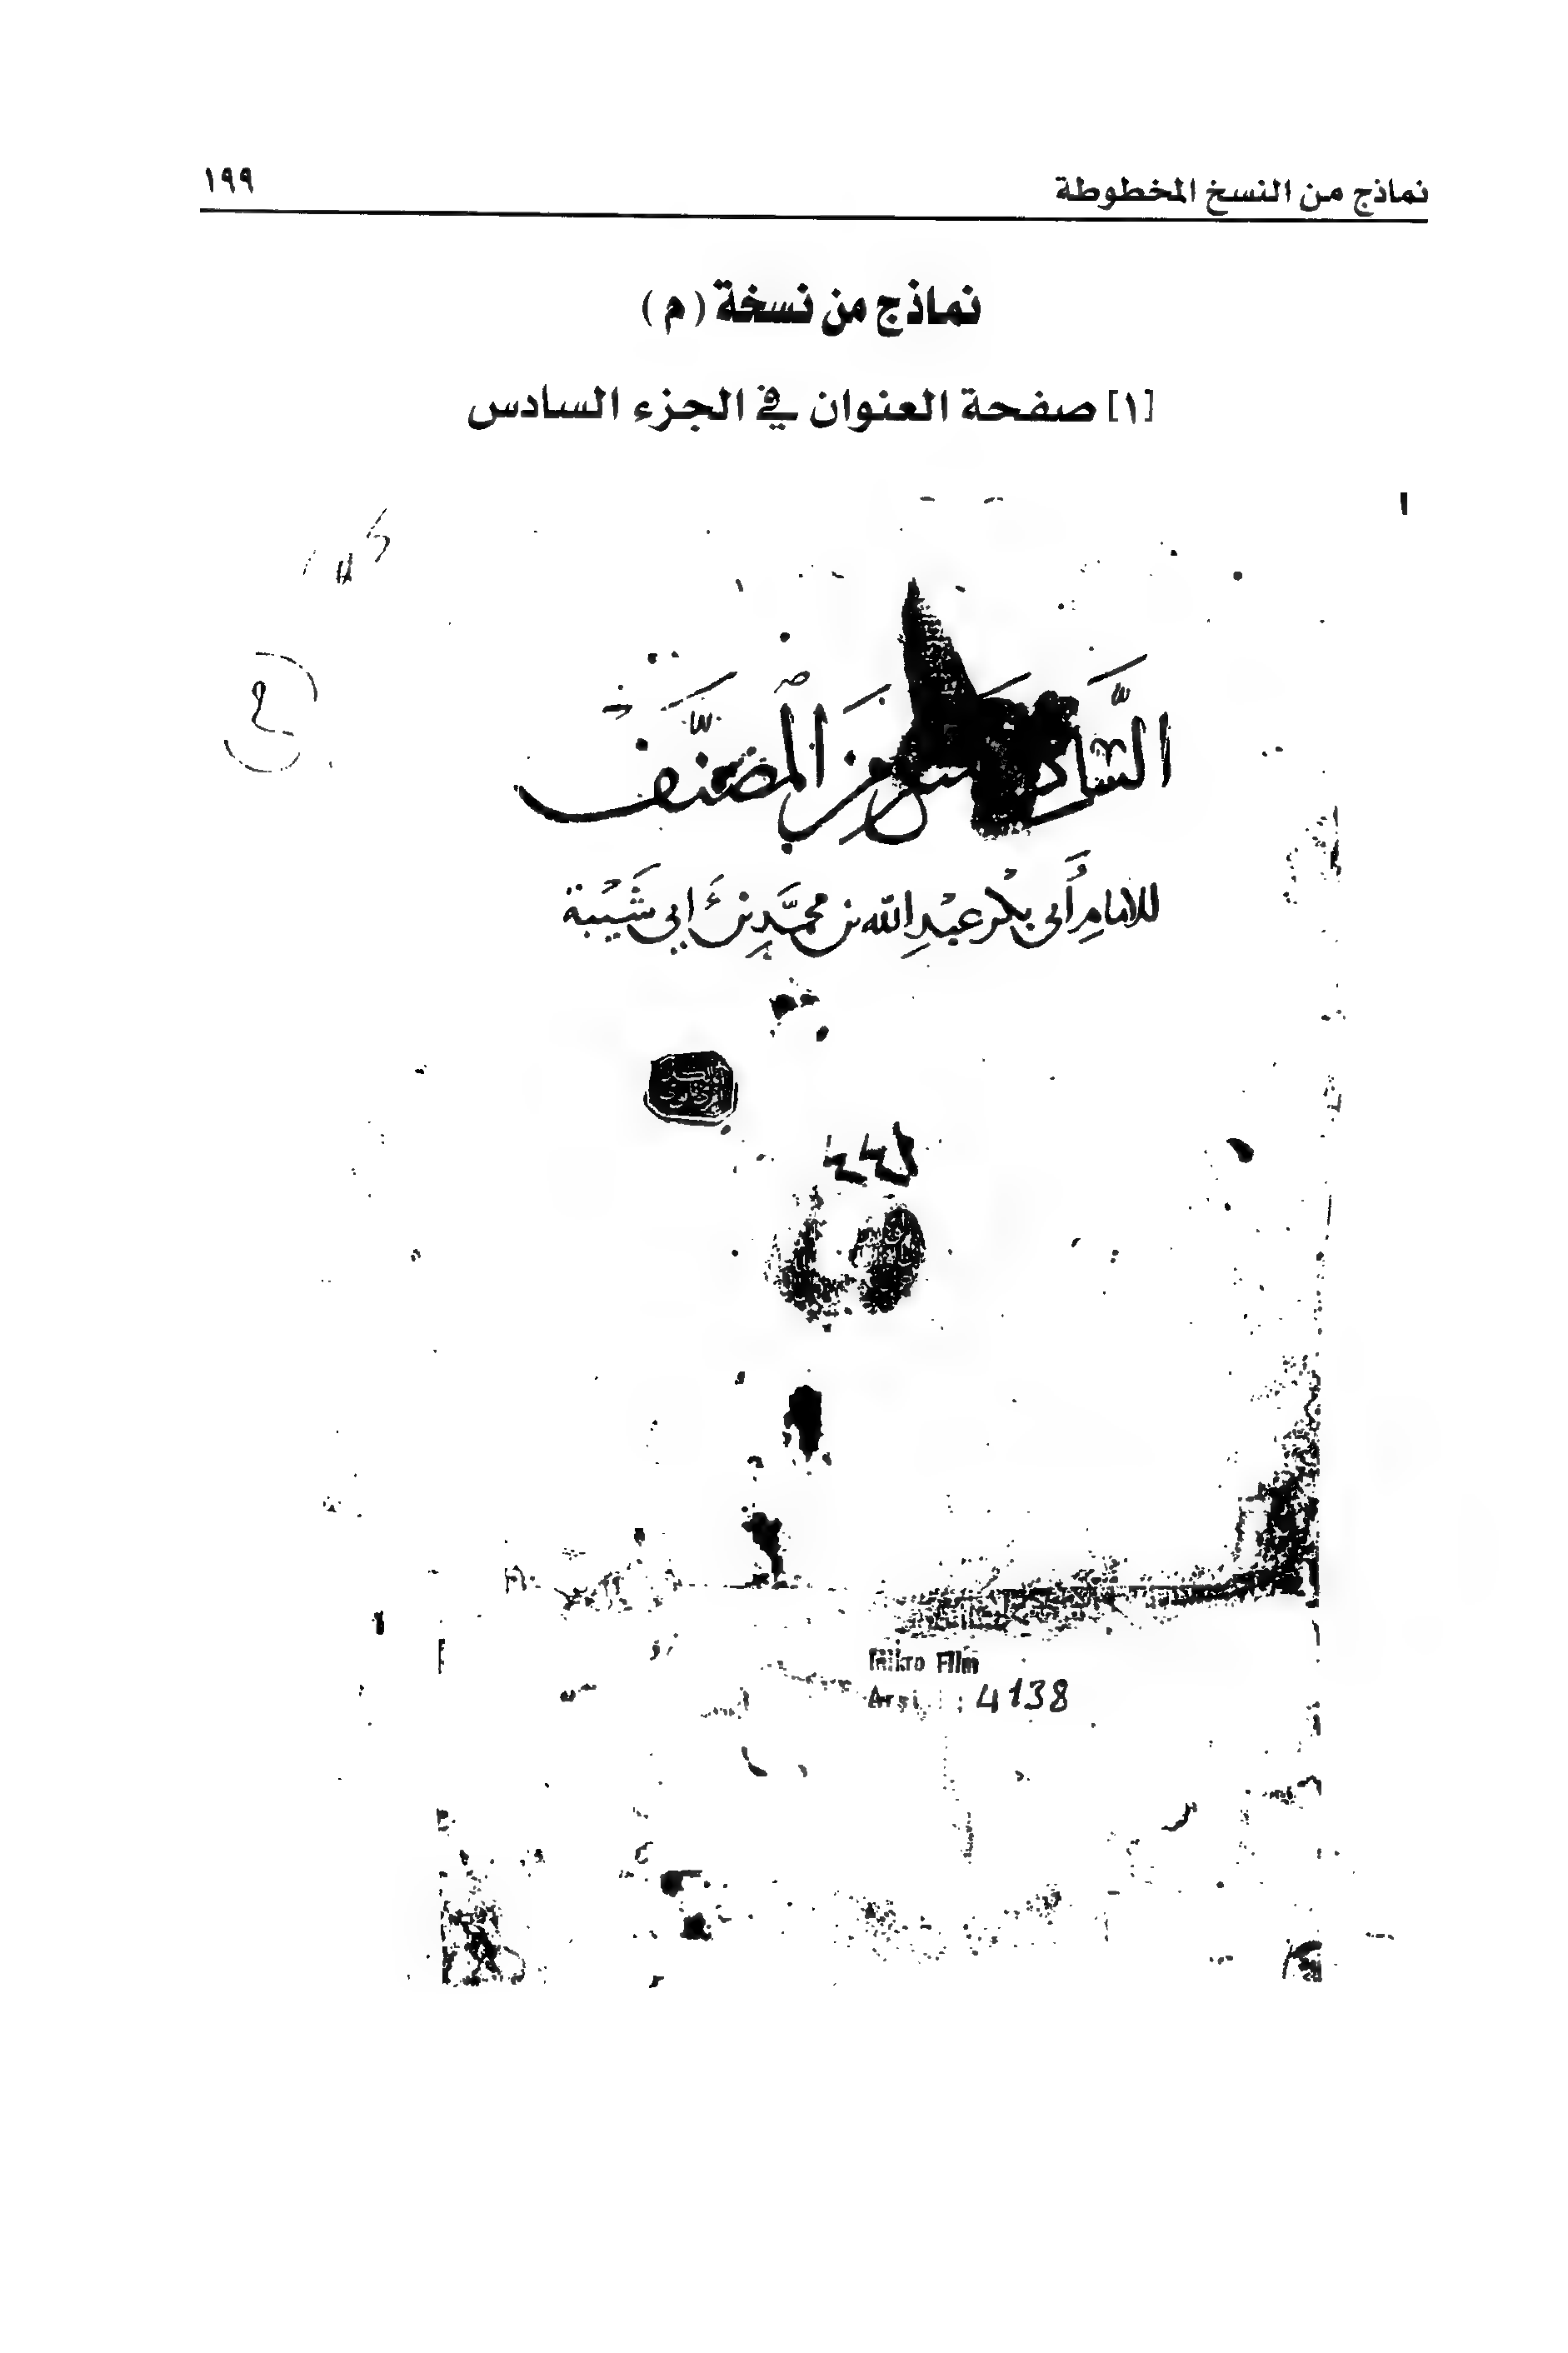 نماذج من النسخ المخطوطة ١٩٩
نماذج من نسخة (م)
[١] صفحة العنوان في الجزء السادس
السَّادس مِنَ المُصَنَّف
للامامِ أَبي بكْر عبْدِ الله بن محمَّدِ بن أبي شَيْبة
Mikro Film
Arşi : 4138